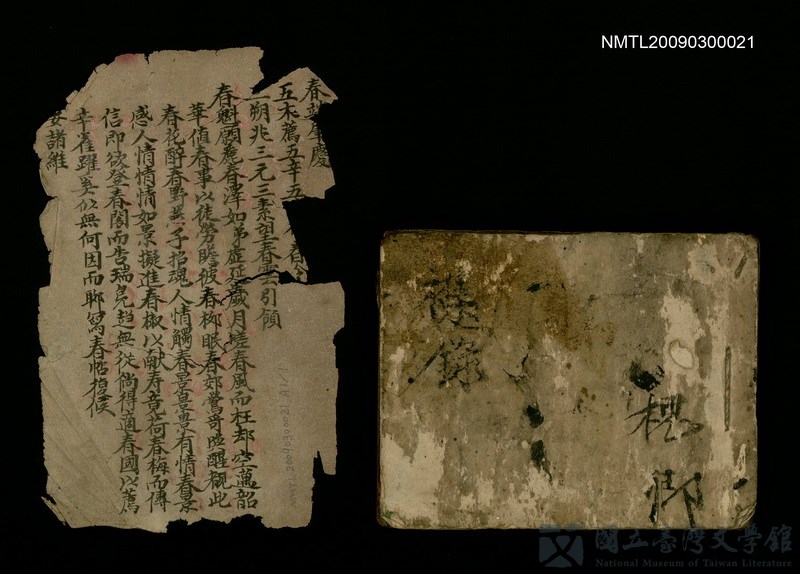 NMTL20090300021
春
慶
五木薦五辛五
一朔兆三元三素望春雲引領
春魁願萬春澤如弟虛延歲月嗟春風而枉却空蕙韶
華值春事以徒勞瞻彼春柳眼春郊鶯哥喚醒觀此
春花醉春野燕子招魂人情觸春景景有情春景
感人情情情如景擬進春椒以献寿竟荷春梅而傳
信即欲登春閣而告瑞羌趋無從倘得適春國以薦
辛雀躍奚似無何因而聊寫春帖撥候
安諸維
雜錄
桃卿
NMTL20090300021 A1/1
國立臺灣文學館
National Museum of Taiwan Literature